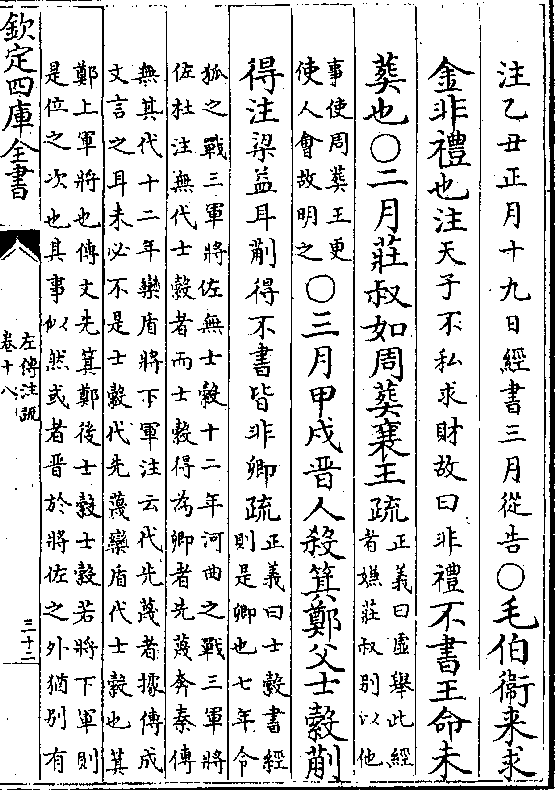 注乙丑正月十九日經書三月從告○毛伯衞来求
金非禮也注天子不私求財故曰非禮不書王命未
葬也○二月莊叔如周葬襄王疏正義曰虚舉此經
者嫌莊叔别以他
事使周葬王更
使人會故明之○三月甲戌晋人殺箕鄭父士縠蒯
得注梁益耳蒯得不書皆非卿疏正義曰士縠書經
則是卿也七年令
狐之戰三軍將佐無士縠十二年河曲之戰三軍將
佐杜注無代士縠者而士縠得為卿者先蔑奔秦傳
無其代十二年欒盾將下軍注云代先蔑者據傳成
文言之耳未必不是士縠代先蔑欒盾代士縠也箕
鄭上軍將也傳文先箕鄭後士縠士縠若將下軍則
是位之次也其事似然或者晋於將佐之外猶别有
欽定四庫全書
左傳注疏
卷十八
三十二